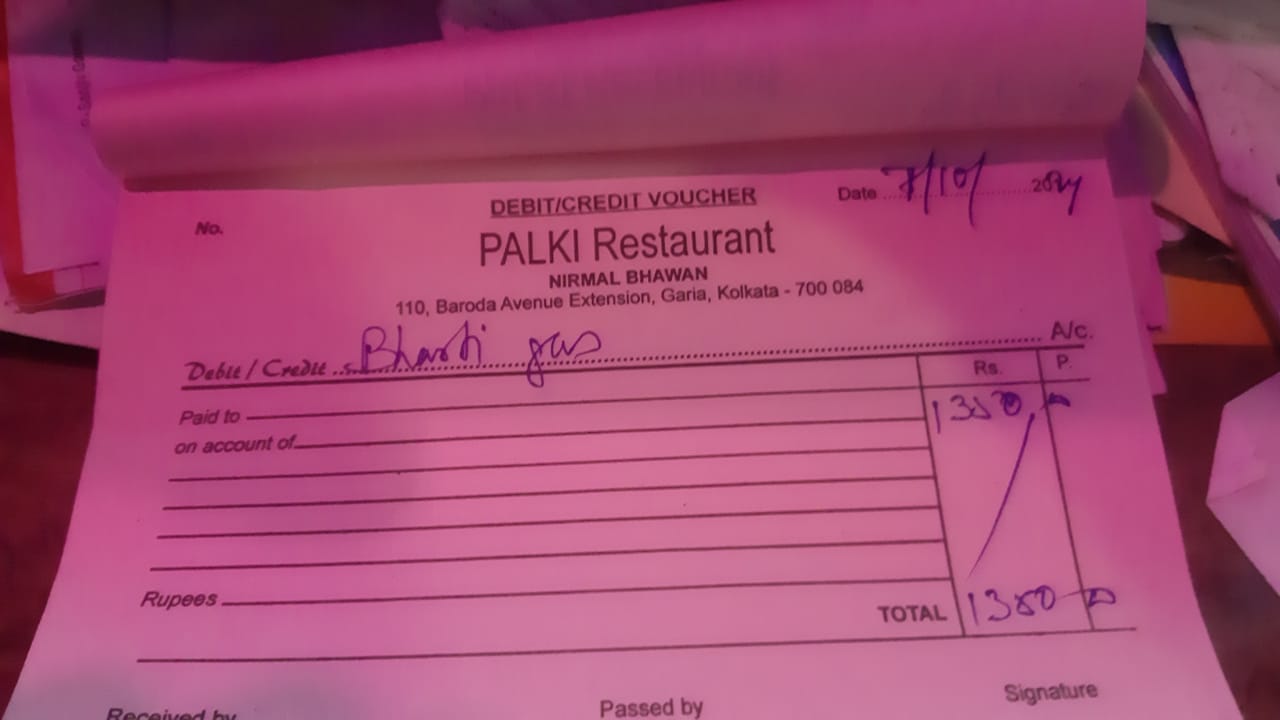 DEBIT/CREDIT VOUCHER
Date 7/10/ 2024
No.
PALKI Restaurant
NIRMAL BHAWAN
110, Baroda Avenue Extension, Garia, Kolkata - 700 084
Debit / Credit Bharti gas A/c.
Rs. P.
Paid to
on account of
Rupees
TOTAL
Received by Passed by Signature